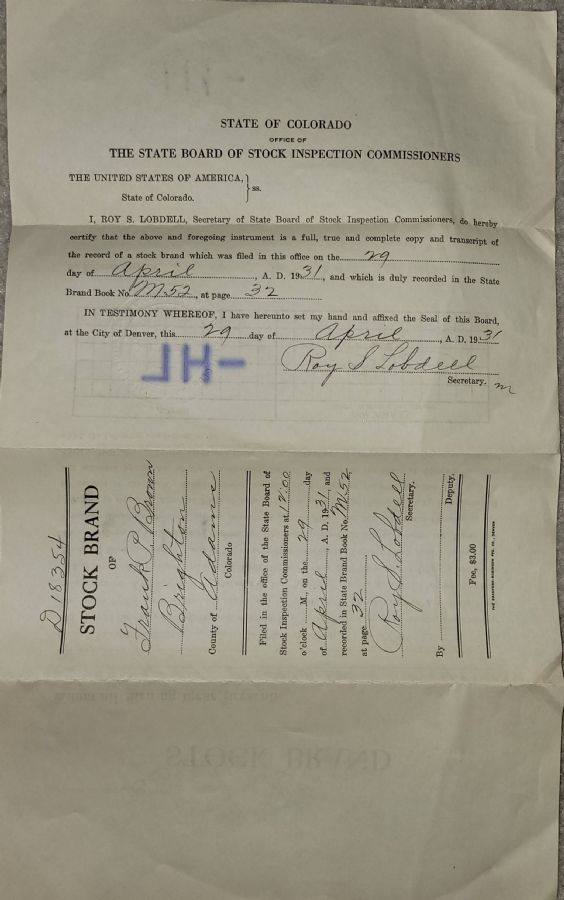 STATE OF COLORADO
OFFICE OF
THE STATE BOARD OF STOCK INSPECTION COMMISSIONERS
THE UNITED STATES OF AMERICA, } ss.
State of Colorado.
I, ROY S. LOBDELL, Secretary of State Board of Stock Inspection Commissioners, do hereby
certify that the above and foregoing instrument is a full, true and complete copy and transcript of
the record of a stock brand which was filed in this office on the 29
day of April, A. D. 1931, and which is duly recorded in the State
Brand Book No. M52, at page 32
IN TESTIMONY WHEREOF, I have hereunto set my hand and affixed the Seal of this Board,
at the City of Denver, this 29 day of April, A. D. 1931
Roy S Lobdell
Secretary. m
D 18354
STOCK BRAND
OF
Frank P. Brown
Brighton
County of Adams
Colorado
Filed in the office of the State Board of
Stock Inspection Commissioners at 12:00
o'clock M., on the 29 day
of April, A. D. 1931, and
recorded in State Brand Book No. M52,
at page 32
Roy S. Lobdell
Secretary.
By Deputy.
Fee, $3.00
STOCK BRAND